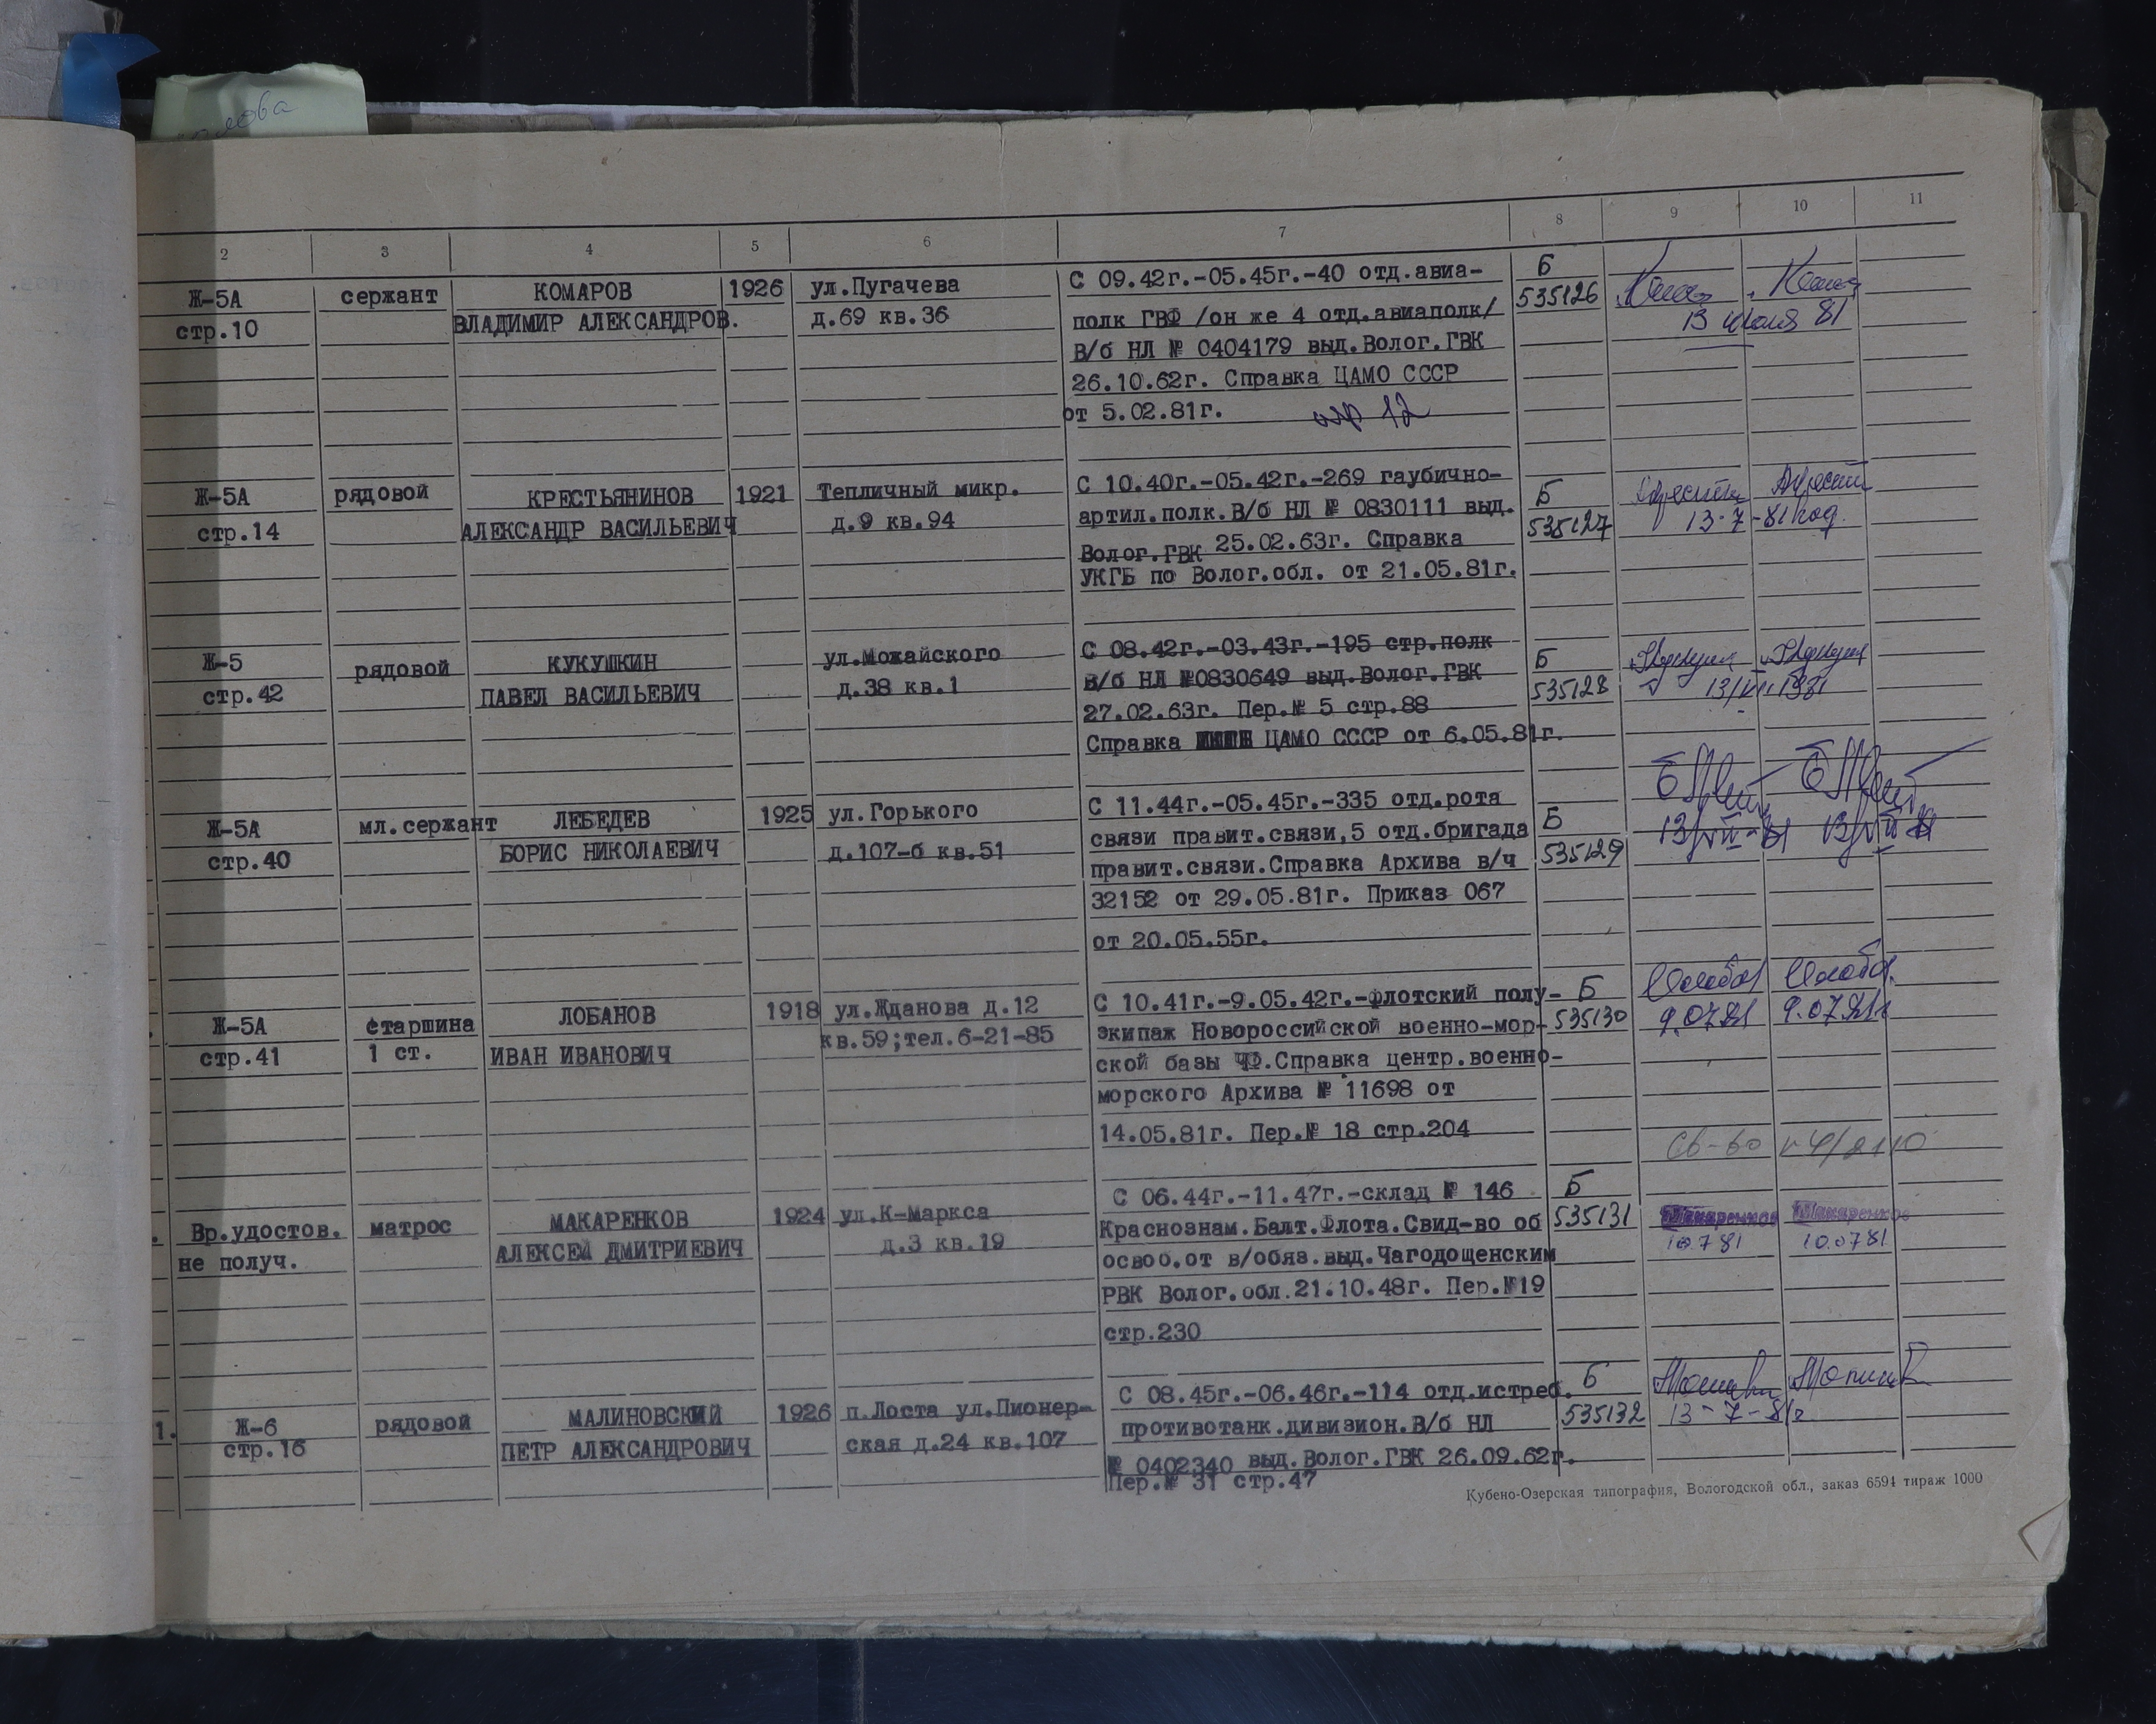 2 3 4 5 6 7 8 9 10 11
Ж-5А
стр.10
сержант
КОМАРОВ
ВЛАДИМИР АЛЕКСАНДРОВ.
1926
ул.Пугачева
д.69 кв.36
С 09.42г.-05.45г.-40 отд.авиа-
полк ГВФ /он же 4 отд.авиаполк/
В/б НЛ № 0404179 выд.Волог.ГВК
26.10.62г. Справка ЦАМО СССР
от 5.02.81г.
Б
535126
13 июля 81
Ж-5А
стр.14
рядовой
КРЕСТЬЯНИНОВ
АЛЕКСАНДР ВАСИЛЬЕВИЧ
1921
Тепличный микр.
д.9 кв.94
С 10.40г.-05.42г.-269 гаубично-
артил.полк.В/б НЛ № 0830111 выд.
Волог.ГВК 25.02.63г. Справка
УКГБ по Волог.обл. от 21.05.81г.
Б
535127
13-7-81 год.
Ж-5
стр.42
рядовой
КУКУШКИН
ПАВЕЛ ВАСИЛЬЕВИЧ
ул.Можайского
д.38 кв.1
С 08.42г.-03.43г.-195 стр.полк
в/б НЛ №0830649 выд.Волог.ГВК
27.02.63г. Пер.№ 5 стр.88
Справка ЦАМО СССР от 6.05.81г.
Б
535128
13/VII 1981
Ж-5А
стр.40
мл.сержант
ЛЕБЕДЕВ
БОРИС НИКОЛАЕВИЧ
1925
ул.Горького
д.107-б кв.51
С 11.44г.-05.45г.-335 отд.рота
связи правит.связи,5 отд.бригада
правит.связи.Справка Архива в/ч
32152 от 29.05.81г. Приказ 067
от 20.05.55г.
Б
535129
13/VII-81
13/VII 81
Ж-5А
стр.41
старшина
1 ст.
ЛОБАНОВ
ИВАН ИВАНОВИЧ
1918
ул.Жданова д.12
кв.59;тел.6-21-85
С 10.41г.-9.05.42г.-флотский полу-
экипаж Новороссийской военно-мор-
ской базы ЧФ.Справка центр.военно-
морского Архива № 11698 от
14.05.81г. Пер.№ 18 стр.204
Б
535130
9.07.81
9.07.81г
Св-во
Вр.удостов.
не получ.
матрос
МАКАРЕНКОВ
АЛЕКСЕЙ ДМИТРИЕВИЧ
1924
ул.К-Маркса
д.3 кв.19
С 06.44г.-11.47г.-склад № 146
Краснознам.Балт.Флота.Свид-во об
освоб.от в/обяз.выд.Чагодощенским
РВК Волог.обл.21.10.48г. Пер.№19
стр.230
Б
535131
Макаренков
Макаренков
10.7 81
10.07 81
1.
Ж-6
стр.16
рядовой
МАЛИНОВСКИЙ
ПЕТР АЛЕКСАНДРОВИЧ
1926
п.Лоста ул.Пионер-
ская д.24 кв.107
С 08.45г.-06.46г.-114 отд.истреб.
противотанк.дивизион.В/б НЛ
№ 0402340 выд.Волог.ГВК 26.09.62г.
Пер.№ 31 стр.47
Б
535132
13-7-81г
Кубено-Озерская типография, Вологодской обл., заказ 6594 тираж 1000